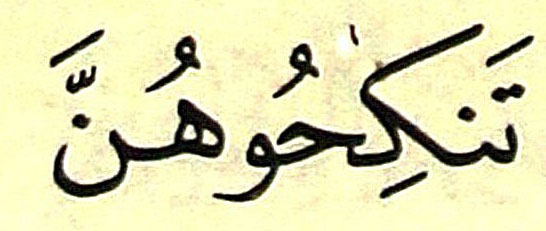 تَنكِحُوهُنَّ